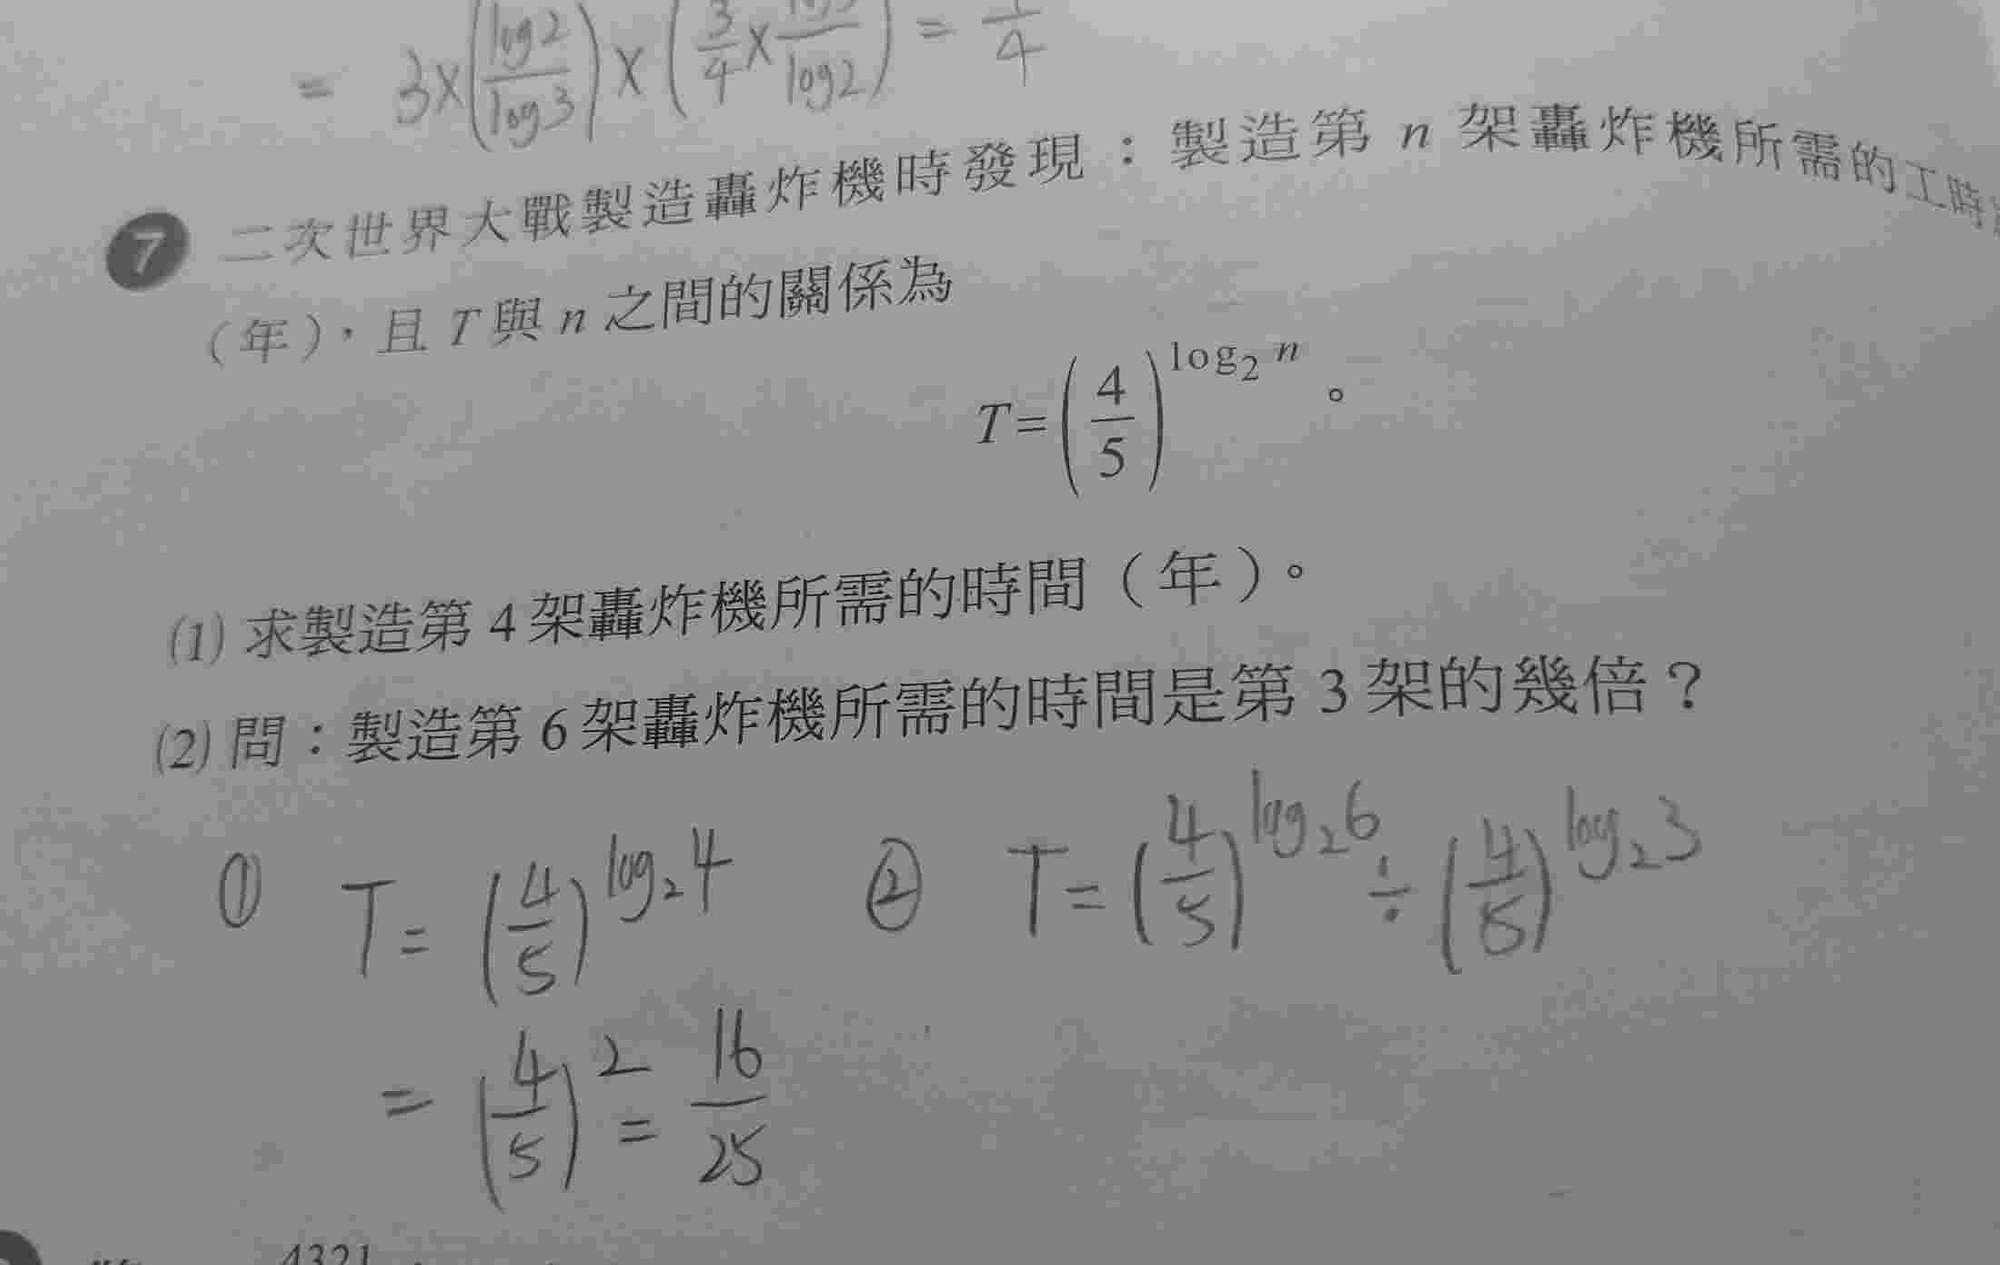 = 3×(log2/log3)×(3/4×/log2) = /4
7 二次世界大戰製造轟炸機時發現：製造第 n 架轟炸機所需的工時
（年），且 T 與 n 之間的關係為
T=(4/5)^log₂ n。
(1) 求製造第 4 架轟炸機所需的時間（年）。
(2) 問：製造第 6 架轟炸機所需的時間是第 3 架的幾倍？
① T=(4/5)^log₂4 ② T=(4/5)^log₂6÷(4/5)^log₂3
=(4/5)^2=16/25
4321